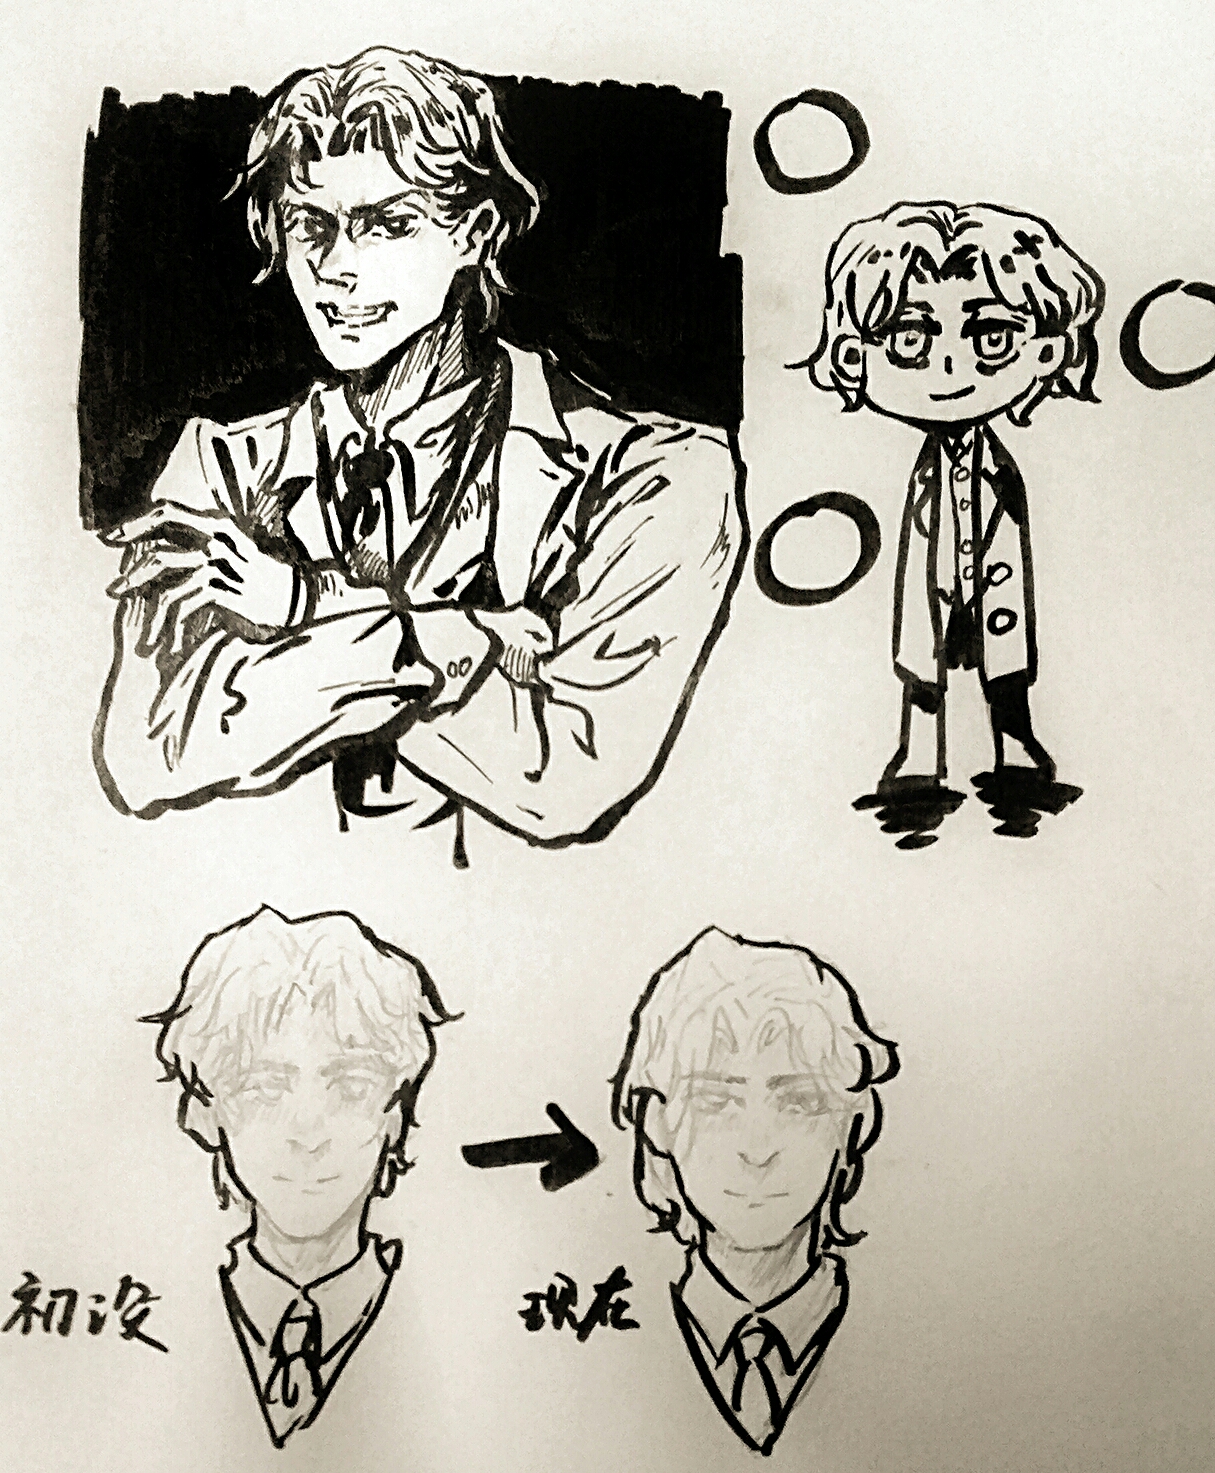 初设
现在